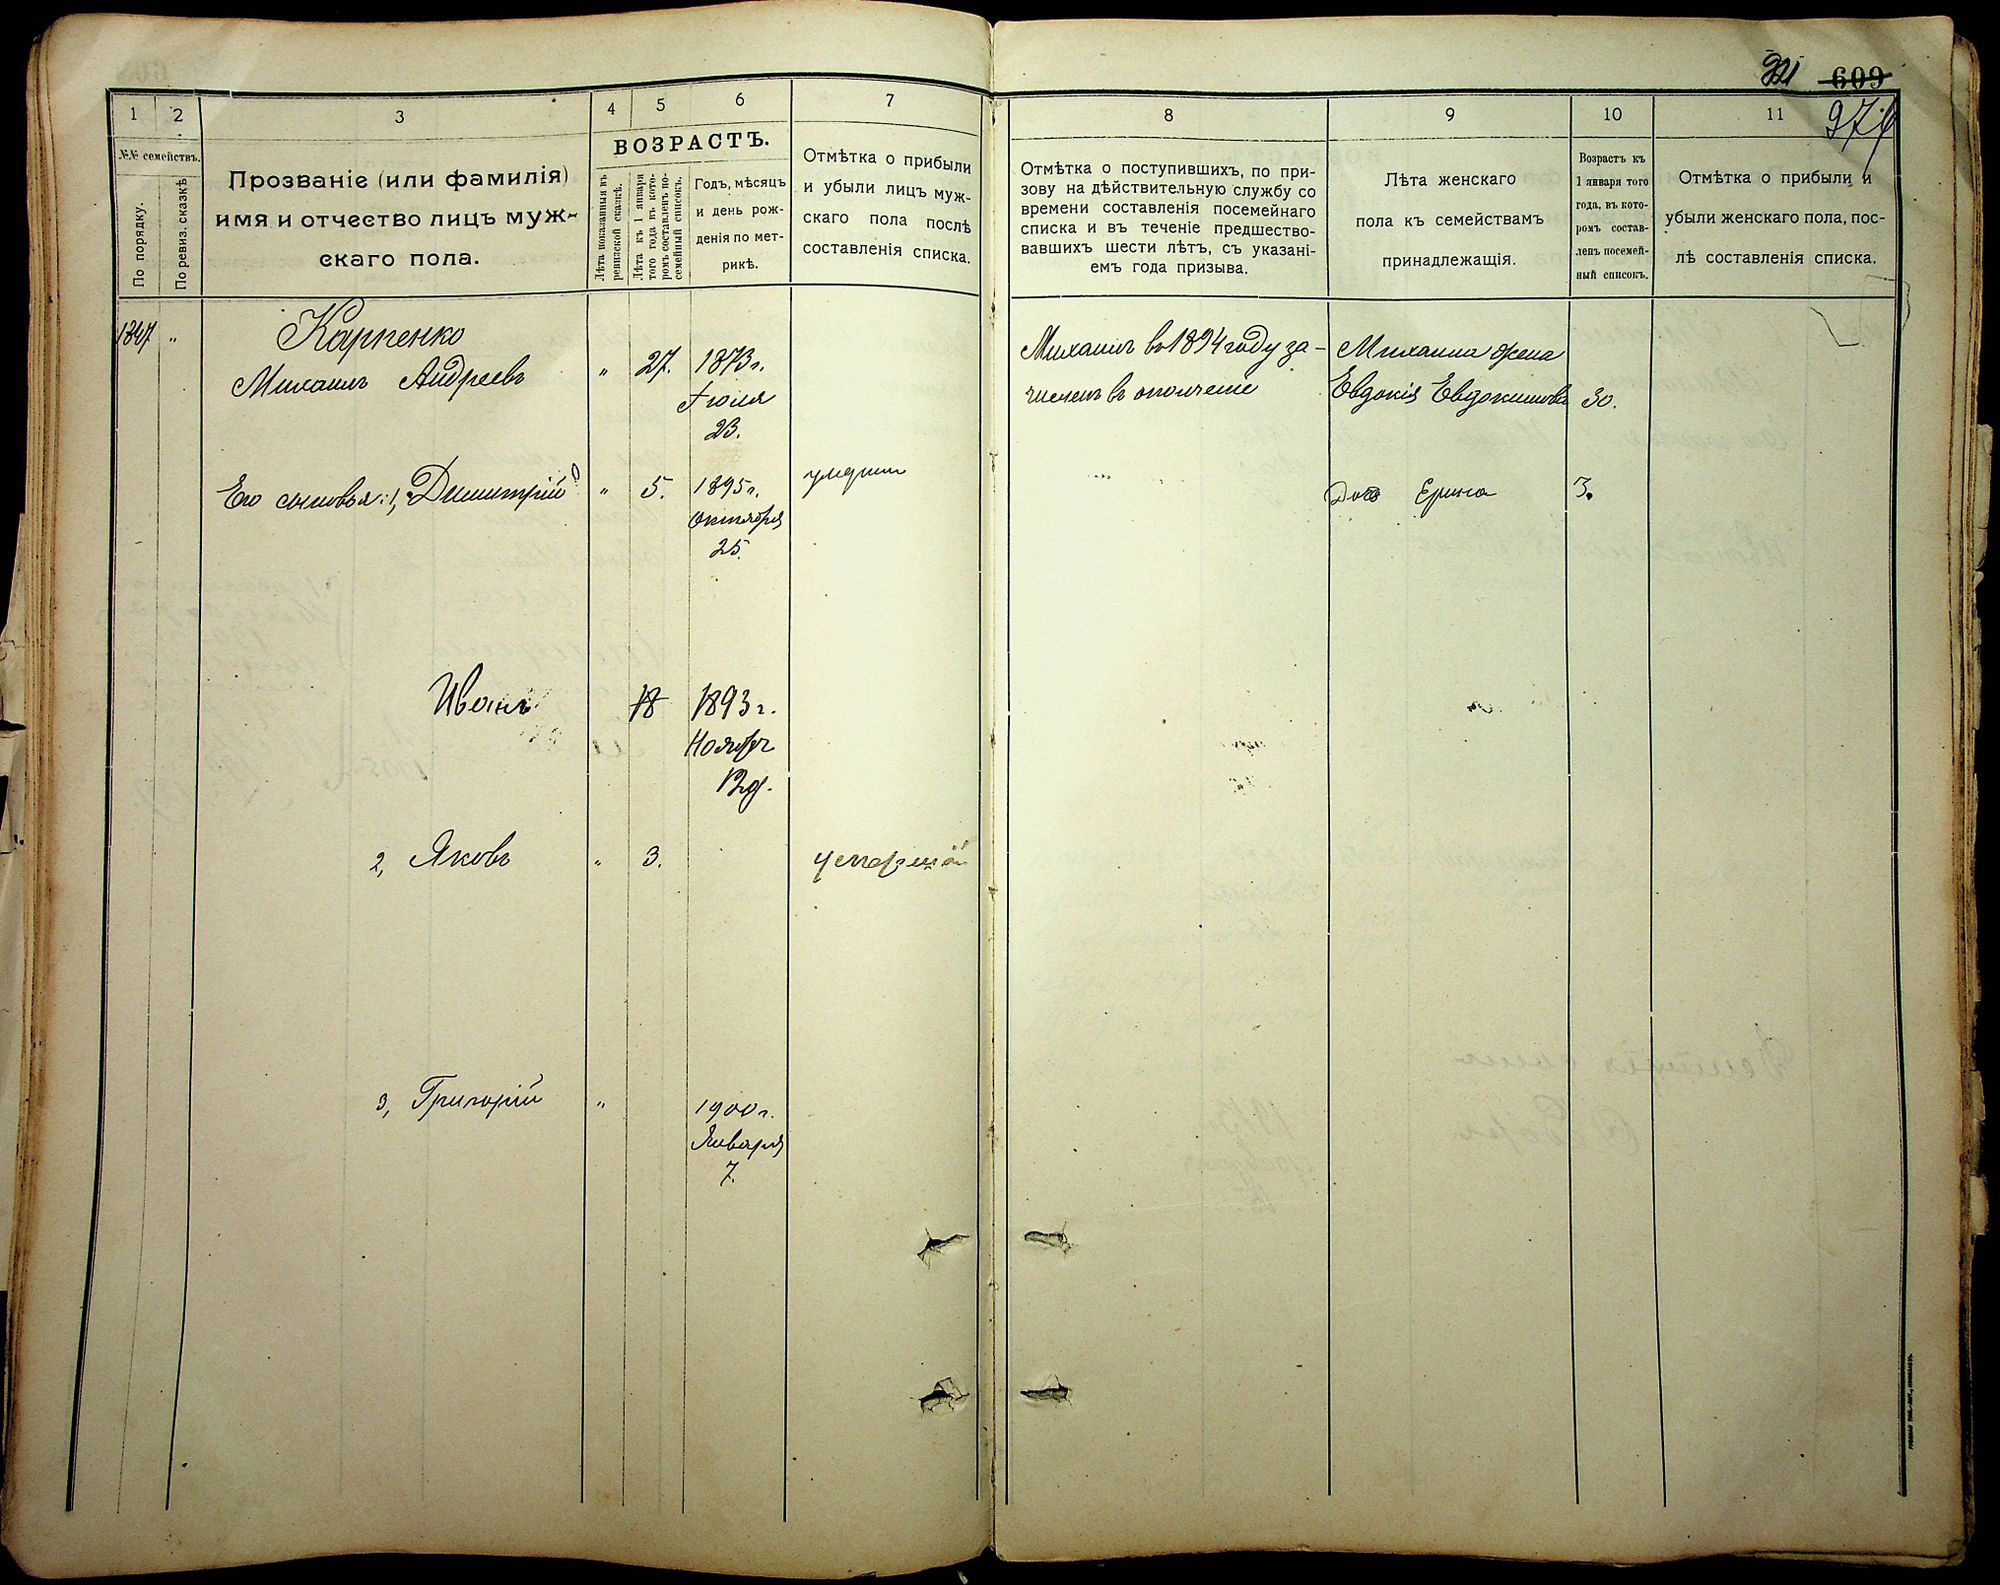 609
974
1 2 3 4 5 6 7
№№ семействъ.
По порядку.
По ревиз. сказкѣ
Прозваніе (или фамилія)
имя и отчество лицъ муж-
скаго пола.
ВОЗРАСТЪ.
Лѣта показанныя въ
ревизской сказкѣ.
Лѣта къ 1 января
того года въ кото-
ромъ составленъ по-
семейный списокъ.
Годъ, мѣсяцъ
и день рож-
денія по мет-
рикѣ.
Отмѣтка о прибыли
и убыли лицъ муж-
скаго пола послѣ
составленія списка.
8 9 10 11
Отмѣтка о поступившихъ, по при-
зову на дѣйствительную службу со
времени составленія посемейнаго
списка и въ теченіе предшество-
вавшихъ шести лѣтъ, съ указані-
емъ года призыва.
Лѣта женскаго
пола къ семействамъ
принадлежащія.
Возрастъ къ
1 января того
года, въ кото-
ромъ состав-
ленъ посемей-
ный списокъ.
Отмѣтка о прибыли и
убыли женскаго пола, пос-
лѣ составленія списка.
1347 "
Карпенко
Михаилъ Андреевъ " 27. 1873 г.
Іюля
23.
Михаилъ въ 1894 году за-
численъ въ ополченіе
Михаила жена
Евдокія Евдокимова 30.
Его сыновья: 1, Димитрій " 5. 1895 г.
Октября
25.
умерши
Дочь Ерина 3.
Иванъ 18 1893 г.
Ноября
12 д.
2, Яковъ " 3. умершій
3, Григорій " 1900 г.
Января
7.